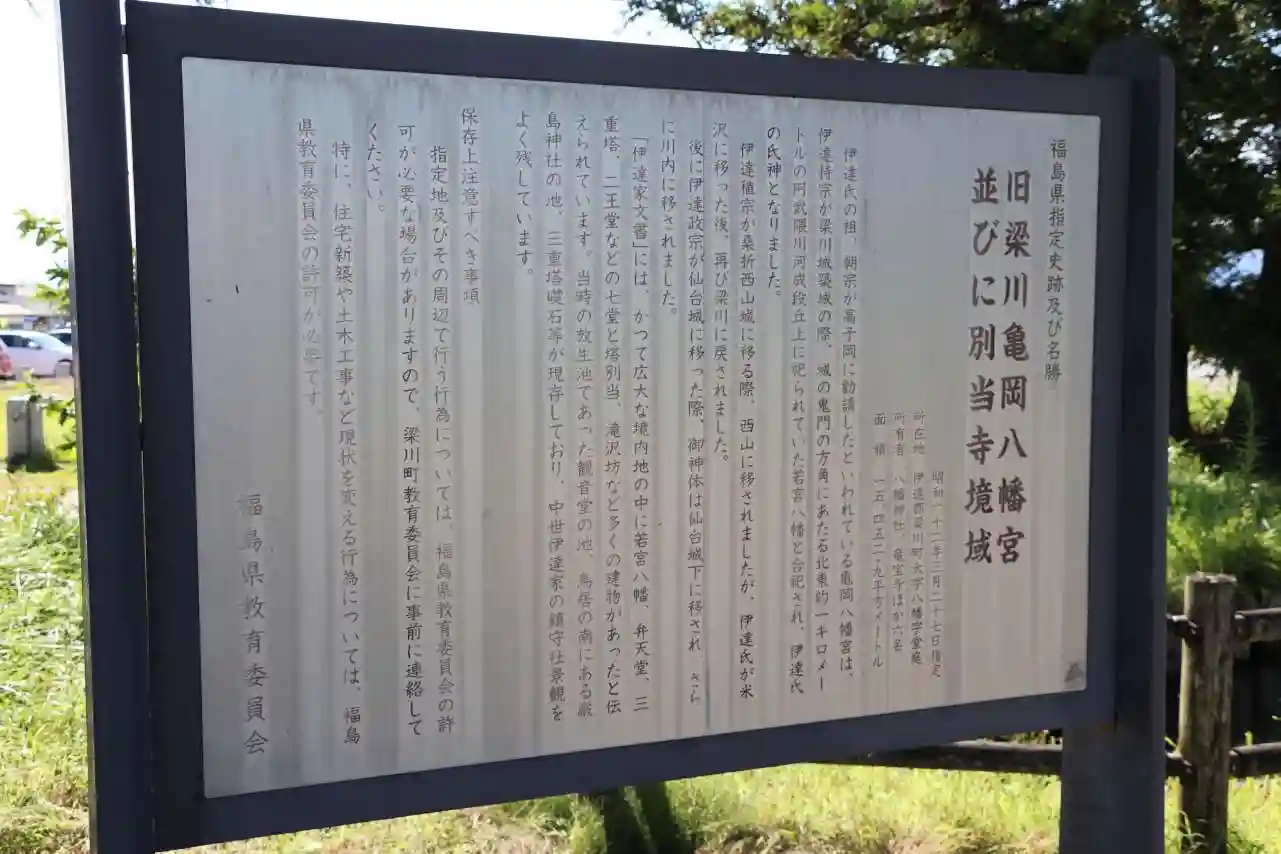 福島県指定史跡及び名勝
旧梁川亀岡八幡宮
並びに別当寺境域
昭和二十二年三月二十七日指定
所在地　伊達郡梁川町大字八幡字堂庭
所有者　八幡神社、龍宝寺ほか六名
面　積　一五、四五二・九平方メートル
伊達氏の祖、朝宗が高子岡に勧請したといわれている亀岡八幡宮は、
伊達持宗が梁川城築城の際、城の鬼門の方角にあたる北東約一キロメー
トルの阿武隈川河成段丘上に祀られていた若宮八幡と合祀され、伊達氏
の氏神となりました。
伊達稙宗が桑折西山城に移る際、西山に移されましたが、伊達氏が米
沢に移った後、再び梁川に戻されました。
後に伊達政宗が仙台城に移った際、御神体は仙台城下に移され　さら
に川内に移されました。
「伊達家文書」には、かつて広大な境内地の中に若宮八幡、弁天堂、三
重塔、二王堂などの七堂と塔別当、滝沢坊など多くの建物があったと伝
えられています。当時の放生池であった観音堂の池、鳥居の南にある厳
島神社の池、三重塔礎石等が現存しており、中世伊達家の鎮守社景観を
よく残しています。
保存上注意すべき事項
指定地及びその周辺で行う行為については、福島県教育委員会の許
可が必要な場合がありますので、梁川町教育委員会に事前に連絡して
ください。
特に、住宅新築や土木工事など現状を変える行為については、福島
県教育委員会の許可が必要です。
福島県教育委員会